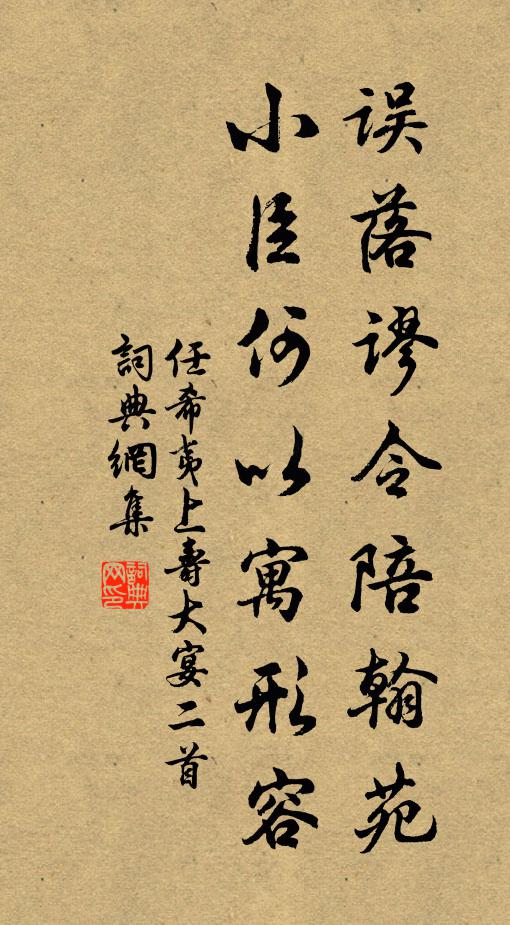 误落谬令陪翰苑
小臣何以寓形容
任希夷上壽大宴二首
詞典網集
詞典網印